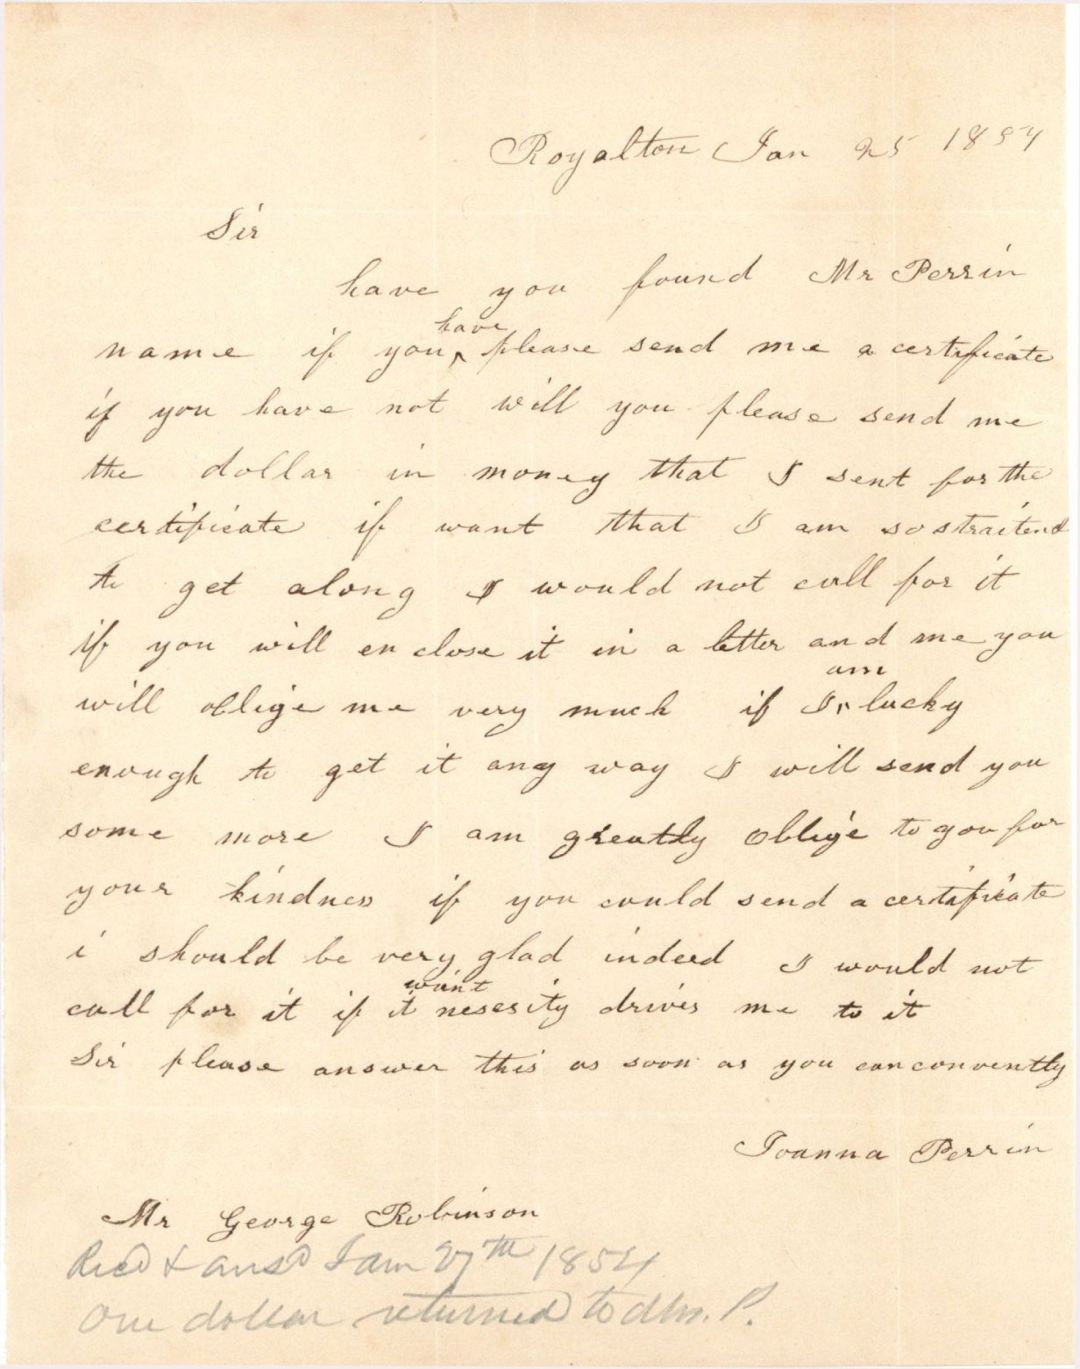 Royalton Jan 25 1854
Sir
have you found Mr Perrin
have
name if you ^ please send me a certificate
if you have not will you please send me
the dollar in money that I sent for the
certificate if want that I am so straitend
to get along I would not call for it
if you will enclose it in a letter and me you
am
will oblige me very much if I ^ lucky
enough to get it any way I will send you
some more I am greatly oblige to you for
your kindness if you could send a certificate
i should be very glad indeed I would not
want
call for it if it nesesity drives me to it
Sir please answer this as soon as you can convently
Joanna Perrin
Mr George Robinson
Recd & ansd Jan 27th 1854
One dollar returned to Mrs. P.